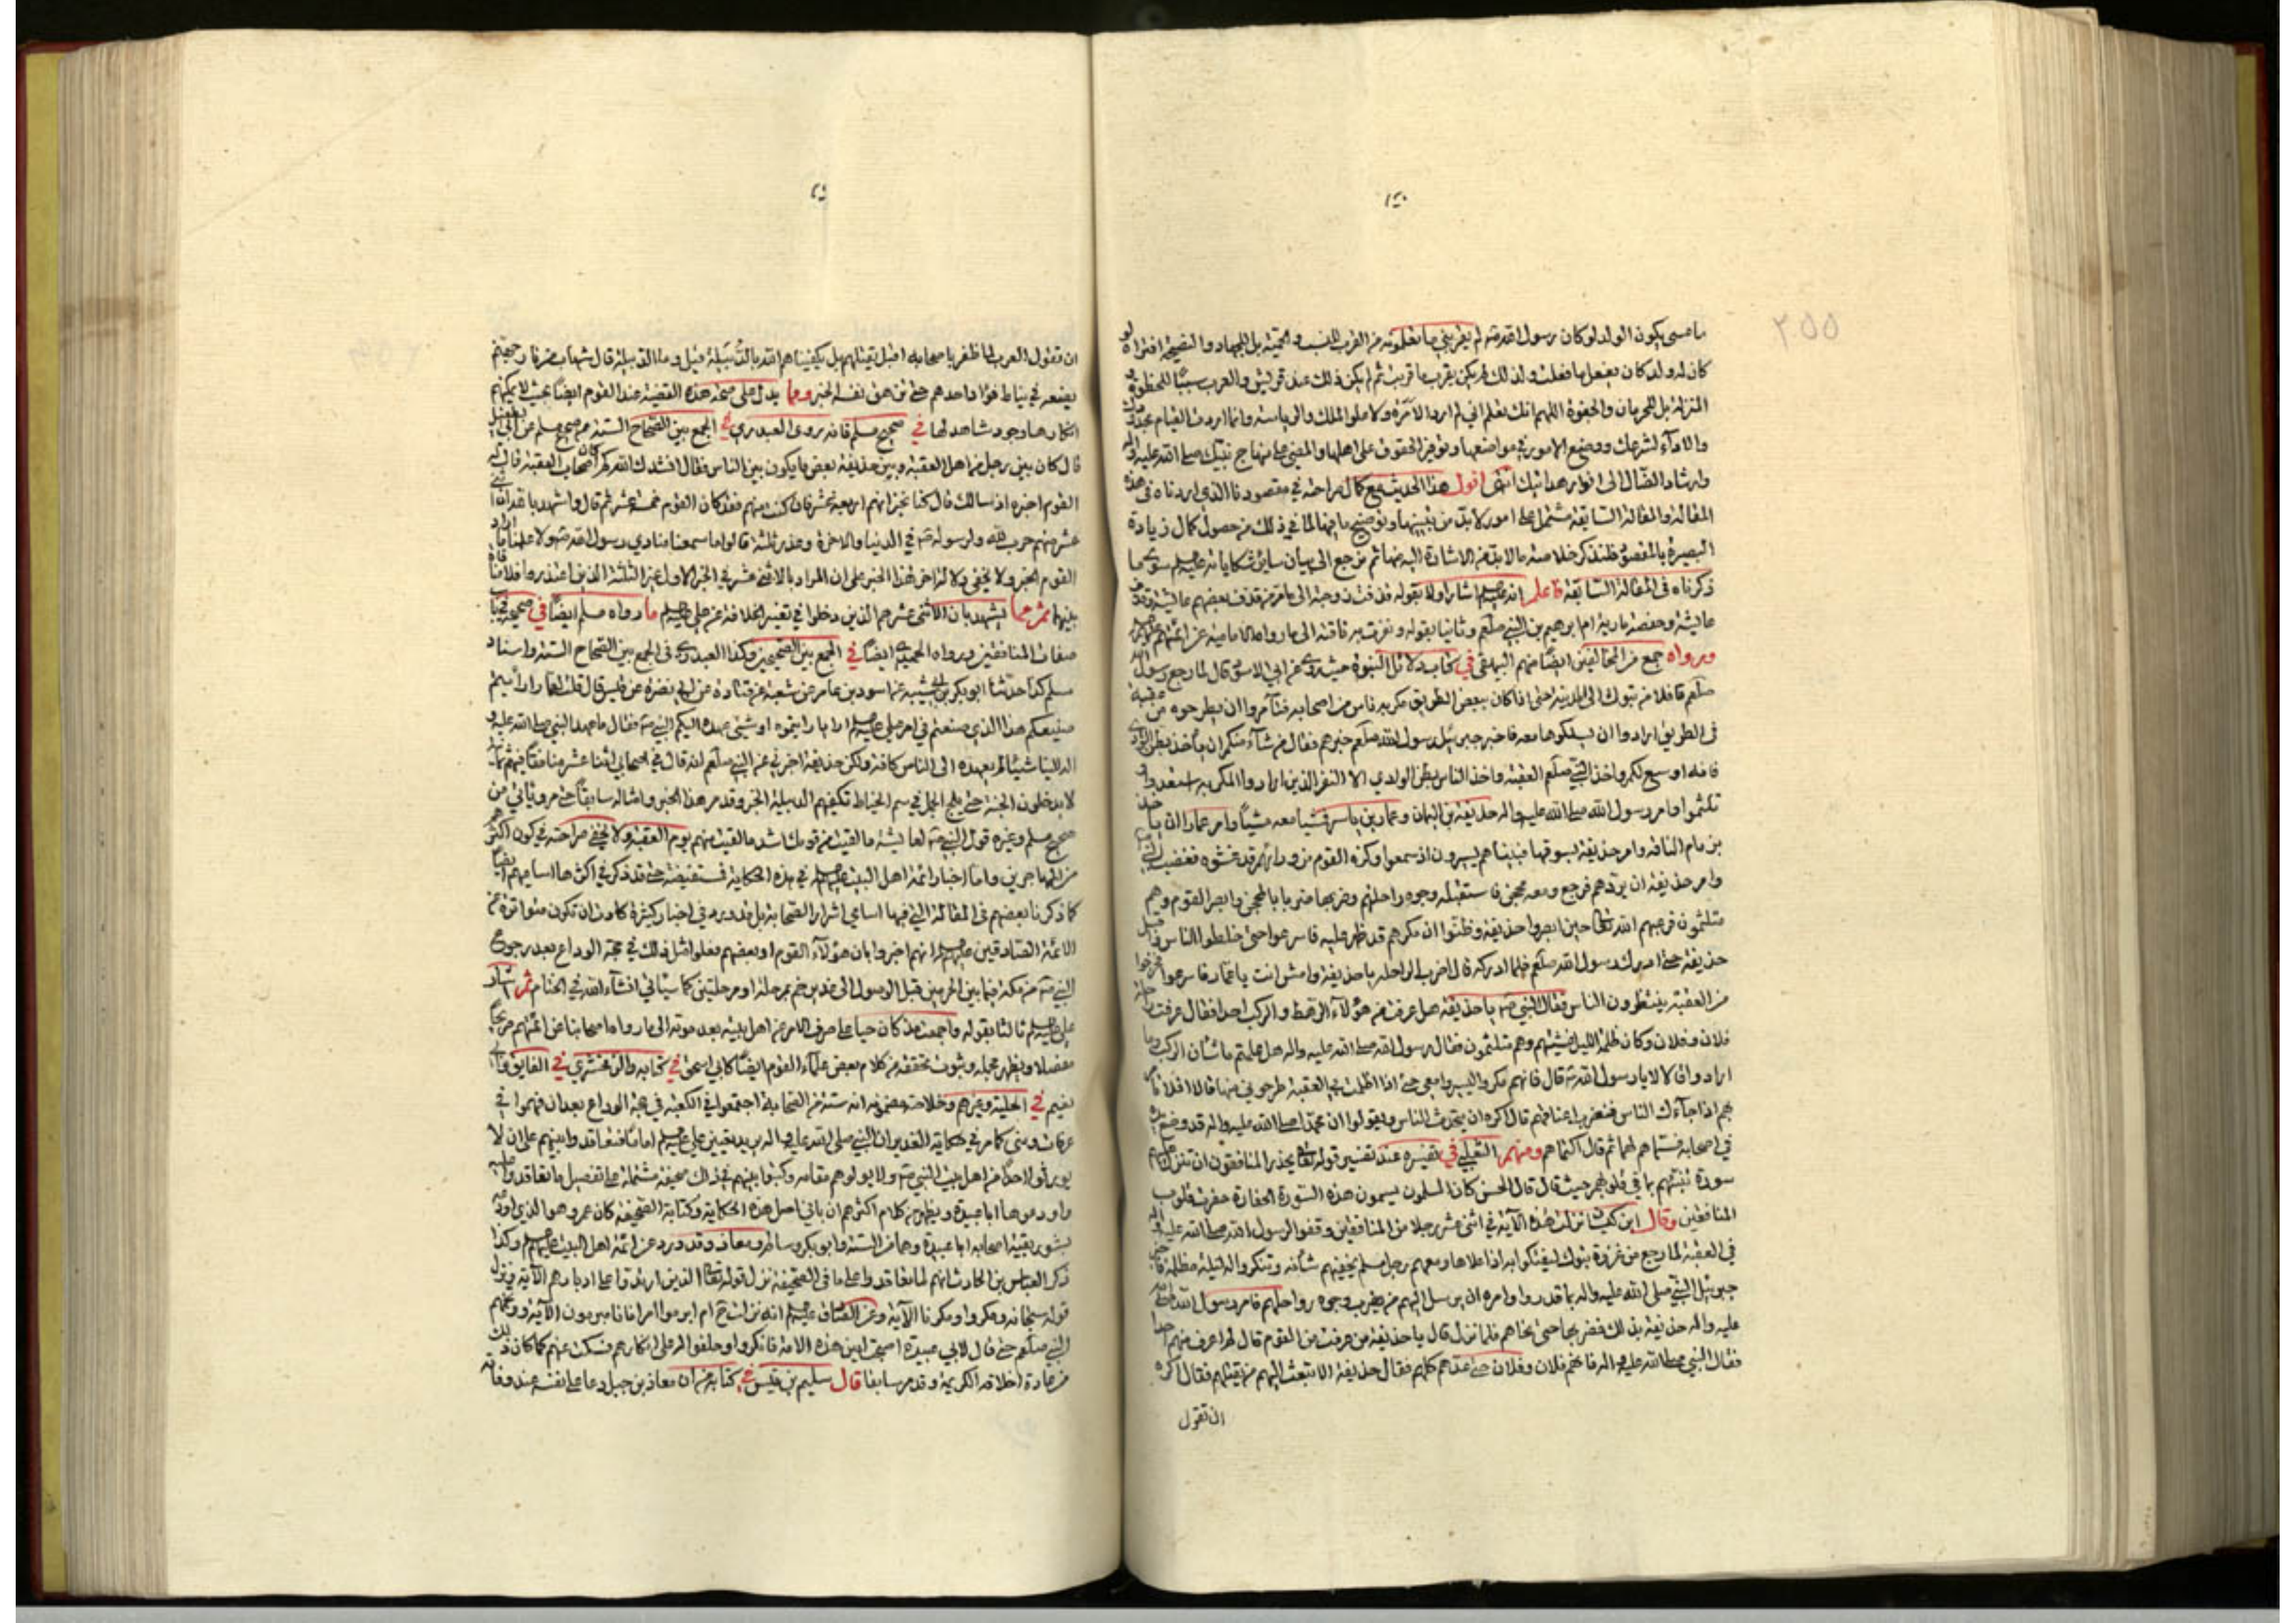 ٢٥٥
ما عسى يكون الولد لو كان رسول الله لم يقربني ما تعلمونه من القرب للنسب و اللحمة بل للجهاد والنصيحة افتراه لو
كان له ولد كان يفعل ما فعلت ولذلك لم يكن يقرب ما قربت ثم لم يكن ذلك عند قريش والعرب سببا للحظوة و
المنزلة بل للحرمان والجفوة اللهم انك تعلم اني لم ارد الامرة ولا علو الملك والرياسة وانما اردت القيام بحدودك
والاداء لشرعك ووضع الامور في مواضعها وتوفير الحقوق على اهلها والمضي على منهاج نبيك صلى الله عليه واله
وارشاد الضال الى انوار هدايتك انتهى اقول هذا الحديث مع كمال صراحته في مقصودنا الذي اردناه في هذه
المقالة والمقالة السابقة مشتمل على امور لابد من تبيينها وتوضيح ما فيها لما في ذلك من حصول كمال زيادة
البصيرة بالمقصود فلنذكر خلاصة ما لابد من الاشارة اليه منها ثم نرجع الى بيان ساير شكاياته عليه السلم سوى ما
ذكرناه في المقالة السابقة فاعلم انه عليه السلم اشار اولا بقوله
عايشة وحفصة مارية ام ابرهيم بن النبي صلعم وثانيا بقوله ونفرت به ناقته الى ما رواه الامامية عن ائمتهم عليهم السلم
ورواه جمع من المخالفين ايضا منهم البيهقي في كتاب دلائل النبوة حيث روى عن ابي الاسود قال لما رجع رسول الله
صلعم قافلا من تبوك الى المدينة حتى اذا كان ببعض الطريق مكر به ناس من اصحابه فتآمروا ان يطرحوه من عقبة
في الطريق ارادوا ان يسلكوها معه فاخبر جبرئيل رسول الله صلعم خبرهم فقال من شآء منكم ان ياخذ بطن الوادي
فانه اوسع لكم واخذ النبي صلعم العقبة واخذ الناس بطن الوادي الا النفر الذين ارادوا المكر به استعدوا و
تلثموا وامر رسول الله صلى الله عليه واله حذيفة بن اليمان وعمار بن ياسر فمشيا معه مشيا وامر عمارا ان ياخذ
بزمام الناقة وامر حذيفة بسوقها فبيناهم يسيرون اذ سمعوا وكزة القوم من ورائهم قد غشوه فغضب النبي
وامر حذيفة ان يردهم فرجع ومعه محجن فاستقبل وجوه رواحلهم وضربها ضربا بالمحجن وابصر القوم وهم
متلثمون فرعبهم الله تعالى حين ابصروا حذيفة وظنوا ان مكرهم قد ظهر عليه فاسرعوا حتى خالطوا الناس واقبل
حذيفة حتى ادرك رسول الله صلعم فلما ادركه قال اضرب الراحلة يا حذيفة وامش انت يا عمار فاسرعوا فخرجوا
من العقبة ينتظرون الناس فقال النبي يا حذيفة هل عرفت من هؤلاء الرهط والركب احدا فقال عرفت راحلة
فلان وفلان وكان ظلمة الليل غشيتهم وهم متلثمون فقال رسول الله صلى الله عليه واله هل علمتم ما شان الركب وما
ارادوا قالا لا يا رسول الله قال فانهم مكروا ليسيروا معي حتى اذا اظلمت بي العقبة طرحوني منها قالا افلا تامر
بهم اذا جآءك الناس فنضرب اعناقهم قال اكره ان يتحدث الناس ويقولوا ان محمدا صلى الله عليه واله قد وضع يده
في اصحابه فسماهم لهما ثم قال اكتماهم ومنهم الثعلبي في تفسيره عند تفسير قوله تعالى يحذر المنافقون ان تنزل عليهم
سورة تنبئهم بما في قلوبهم حيث قال قال الحسن كان المسلمون يسمون هذه السورة الحفارة حفرت قلوب
المنافقين وقال ابن كيسان نزلت هذه الآية في اثنى عشر رجلا من المنافقين وقفوا لرسول الله صلى الله عليه واله
في العقبة لما رجع من غزوة تبوك ليفتكوا به اذا علاها ومعهم رجل مسلم يخفيهم شأنه وتنكروا له ليلة مظلمة فاخبر
جبرئيل النبي صلى الله عليه واله بما قدروا وامره ان يرسل اليهم من يضرب وجوه رواحلهم فامر رسول الله صلى الله
عليه واله حذيفة بذلك فضربها حتى نحاهم فلما نزل قال يا حذيفة من عرفت من القوم قال لم اعرف منهم احدا
فقال النبي صلى الله عليه واله فانهم فلان وفلان حتى عدهم كلهم فقال حذيفة الا تبعث اليهم من يقتلهم فقال اكره
ان تقول
ان تقول العرب لما ظفر باصحابه اقبل يقتلهم بل يكفيناهم الله بالدبيلة قيل وما الدبيلة قال شهاب من نار جهنم
يضعه في نياط فؤاد احدهم حتى تزهق نفسه الخبر ومما يدل على صحة هذه القضية عند القوم ايضا بحيث لا يمكنهم
انكارها وجود شاهد لها في صحيح مسلم فانه روى العبدري في الجمع بين الصحاح الستة عن صحيح مسلم عن ابي الطفيل
قال كان بين رجل من اهل العقبة وبين حذيفة بعض ما يكون بين الناس فقال انشدك الله كم كان اصحاب العقبة قال له
القوم اخبره اذ سالك قال كنا نخبر انهم اربعة عشر فان كنت منهم فقد كان القوم خمسة عشر ثم قال واشهد بالله ان اثنى
عشر منهم حرب لله ولرسوله في الدنيا والاخرة وعذر ثلثة قالوا ما سمعنا منادي رسول الله ولا علمنا بما اراد
القوم الخبر ولا يخفى دلالة اخر هذا الخبر على ان المراد بالاثنى عشر في الخبر الاول غير الثلثة الذين اعتذروا فلا تنافي
بينهما ثم مما يشهد بان الاثنى عشر هم الذين دخلوا في تغيير الخلافة عن علي عليه السلم ما رواه مسلم ايضا في صحيحه في باب
صفات المنافقين ورواه الحميدي ايضا في الجمع بين الصحيحين وكذا العبدري في الجمع بين الصحاح الستة واسناد
مسلم كذا حدثنا ابو بكر بن ابي شيبة عن اسود بن عامر عن شعبة عن قتادة عن ابي نضرة عن قيس قال قلت لعمار ارأيتم
صنيعكم هذا الذي صنعتم في امر علي عليه السلم ارايا رايتموه او شئ عهده اليكم النبي فقال ما عهد النبي صلى الله عليه و
اله الينا شيئا لم يعهده الى الناس كافة ولكن حذيفة اخبرني عن النبي صلعم انه قال في اصحابي اثنا عشر منافقا فيهم ثمانية
لا يدخلون الجنة حتى يلج الجمل في سم الخياط تكفيهم الدبيلة الخبر وقد مر هذا الخبر وامثاله سابقا حتى مر وياتي من
صحيح مسلم وغيره قول النبي لعايشة ما لقيت من قومك اشد ما لقيت منهم يوم العقبة ولا يخفى صراحته في كون اكثرهم
من المهاجرين واما اخبار ائمة اهل البيت عليهم السلم في هذه الحكاية فمستفيضة حتى قد ذكر في اكثرها اساميهم ايضا
كما ذكرنا بعضهم في المقالة التي فيها اسامي اشرار الصحابة بل قد ورد في اخبار كثيرة كادت ان تكون متواترة عن
الائمة الصادقين عليهم السلم انهم اخبروا بان هؤلاء القوم او بعضهم فعلوا مثل ذلك في حجة الوداع بعد رجوع
النبي من مكة فيما بين الحرمين قبل الوصول الى غدير خم بمرحلة او مرحلتين كما سياتي انشاء الله في الختام ثم اشار
علي عليه السلم ثالثا بقوله واجمعت مذ كان حيا على صرف الامر عن اهل بيته بعد موته الى ما رواه اصحابنا عن ائمتهم صريحا
مفصلا ويظهر مجمله وثبوت تحققه من كلام بعض علماء القوم ايضا كابي اسحق في كتابه والزمخشري في الفايق وابي
نعيم في الحلية وغيرهم وخلاصة مضمونه انه ستة من الصحابة اجتمعوا في الكعبة في حجة الوداع بعد ان فهموا في
عرفات ومنى كما مر في حكاية الغدير ان النبي صلى الله عليه واله يريد يقين علي عليه السلم اماما فتعاقدوا بينهم على ان لا
يورثوا احدا من اهل بيت النبي ولا يولوهم مقامه وكتبوا بينهم في ذلك صحيفة مشتملة على تفصيل ما تعاقدوا عليه
واودعوها ابا عبيدة ويظهر من كلام اكثرهم ان باني اصل هذه الحكاية وكتابة الصحيفة كان عمر وهو الذي اودعه
بشور بقية اصحابه ابا عبيدة وهما من الستة وابو بكر وسالم ومعاذ وقد ورد عن ائمة اهل البيت عليهم السلم وكذا
ذكر العباس بن الحارث انهم لما تعاقدوا على ما في الصحيفة نزل قوله تعالى ان الذين ارتدوا على ادبارهم الآية ونزل
قوله سبحانه ومكروا ومكرنا الآية وعن الصادق عليه السلم انه نزلت ام ابرموا امرا فانا مبرمون الآية ووبخهم
النبي صلعم حتى قال لابي عبيدة اصبحت امين هذه الامة فانكروا وحلفوا له على انكارهم فسكت عنهم كما كان ذلك
من عادة اخلاقه الكريمة وقد مر سابقا قال سليم بن قيس في كتابه من ان معاذ بن جبل دعا على نفسه عند وفاته